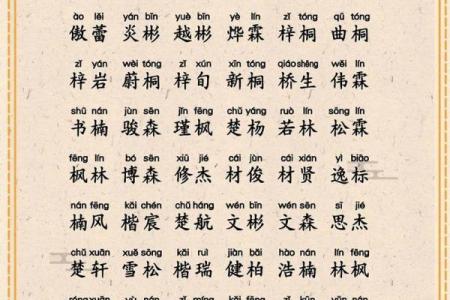 ào lěi yán bīn yuè bīn yè lín zǐ tóng qū tóng
傲蕾 炎彬 越彬 烨霖 梓桐 曲桐
zǐ yán wèi tóng zǐ xún xīn tóng qiáoshēng wěi lín
梓岩 蔚桐 梓旬 新桐 桥生 伟霖
shū nán jùn sēn jǐn fēng chǔ yáng ruò lín sōng lín
书楠 骏森 瑾枫 楚杨 若林 松霖
fēng lín bó sēn xiū jié cái jùn cái xián yì biāo
枫林 博森 修杰 材俊 材贤 逸标
nán fēng kǎi chén chǔ háng wén bīn wén sēn sī jié
楠风 楷宸 楚航 文彬 文森 思杰
chǔ xuān xuě sōng kǎi ruì jiàn bǎi hào nán lín fēng
楚轩 雪松 楷瑞 健柏 浩楠 林枫